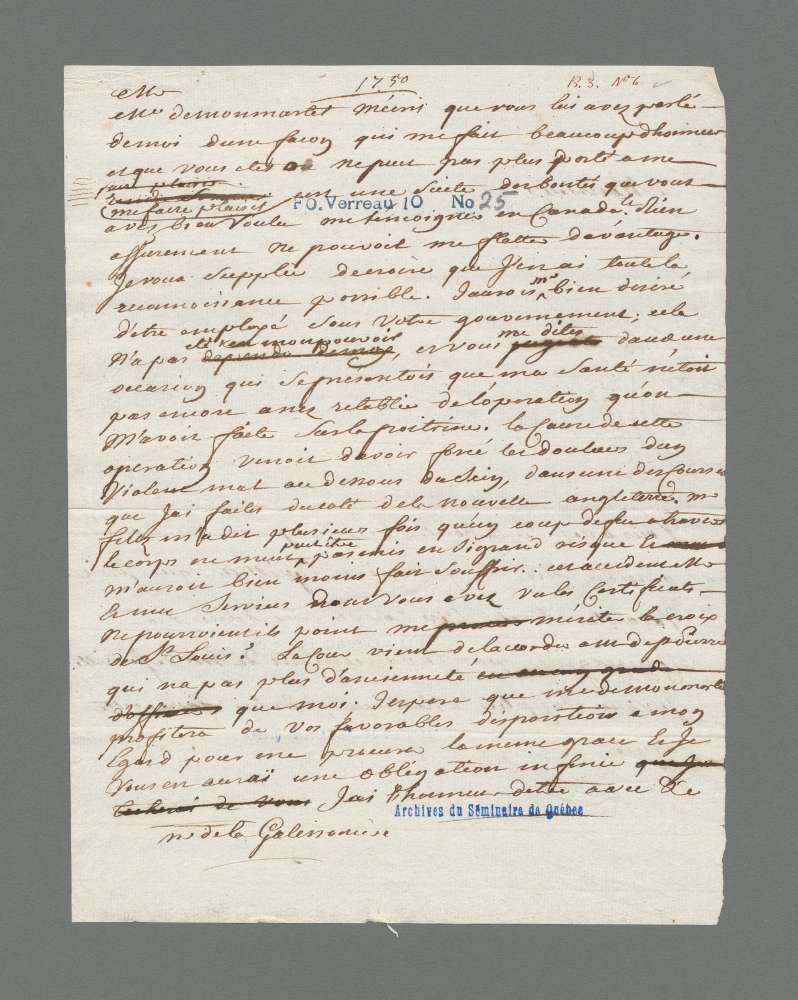 1750
B.3. N°6
Mr
Mr demonmartel m'écrit que vous lui avez parlé
de moi dune façon qui me fait beaucoup dhonneur
et que vous etes on ne peut pas plus porté a me
faire plaisir
me faire plaisir, cest une suite des bontés que vous
FO. Verreau 10 No 25
avés bien voulu me temoigner en Canada. Rien
assurement ne pouvoit me flatter davantage.
Je vous supplie decroire que J'en ai toute la
reconnoissance possible. Jaurois Mr bien desiré
d'etre employé sous votre gouvernement; cela
n'a pas été en mon pouvoir
dependu de moy, et vous me dites dans une
occasion qui se presentois que ma santé n'etoit
pas encore assez retablie de l'operation qu'on
m'avoit faite sur la poitrine. la cause de cette
operation venoit d'avoir forcé les douleurs d'un
violent mal au dessous du sein, dans une des courses
que J'ai faites du coté de la nouvelle angleterre. mr
m'a dit plusieurs fois qu'un coup de feu a travers
le corps ne m'eut peut être pas mis en si grand risque &
m'auroit bien moins fait souffrir. cet accident Mr
& mes services dont vous avez vu les Certificats
ne pourroient ils point me mériter la croix
de St Louis? La Cour vient de l'accorder a mr de
qui na pas plus d'ancienneté en aucun grade
d'officier que moi. J'espere que mr de monmartel
profitera de vos favorables dispositions a mon
Egard pour me procurer la meme grace & Je
vous en aurai une obligation infinie que Je
de vous J'ai l'honneur d'etre avec &c
Archives du Séminaire de Québec
mr de la Galissoniere